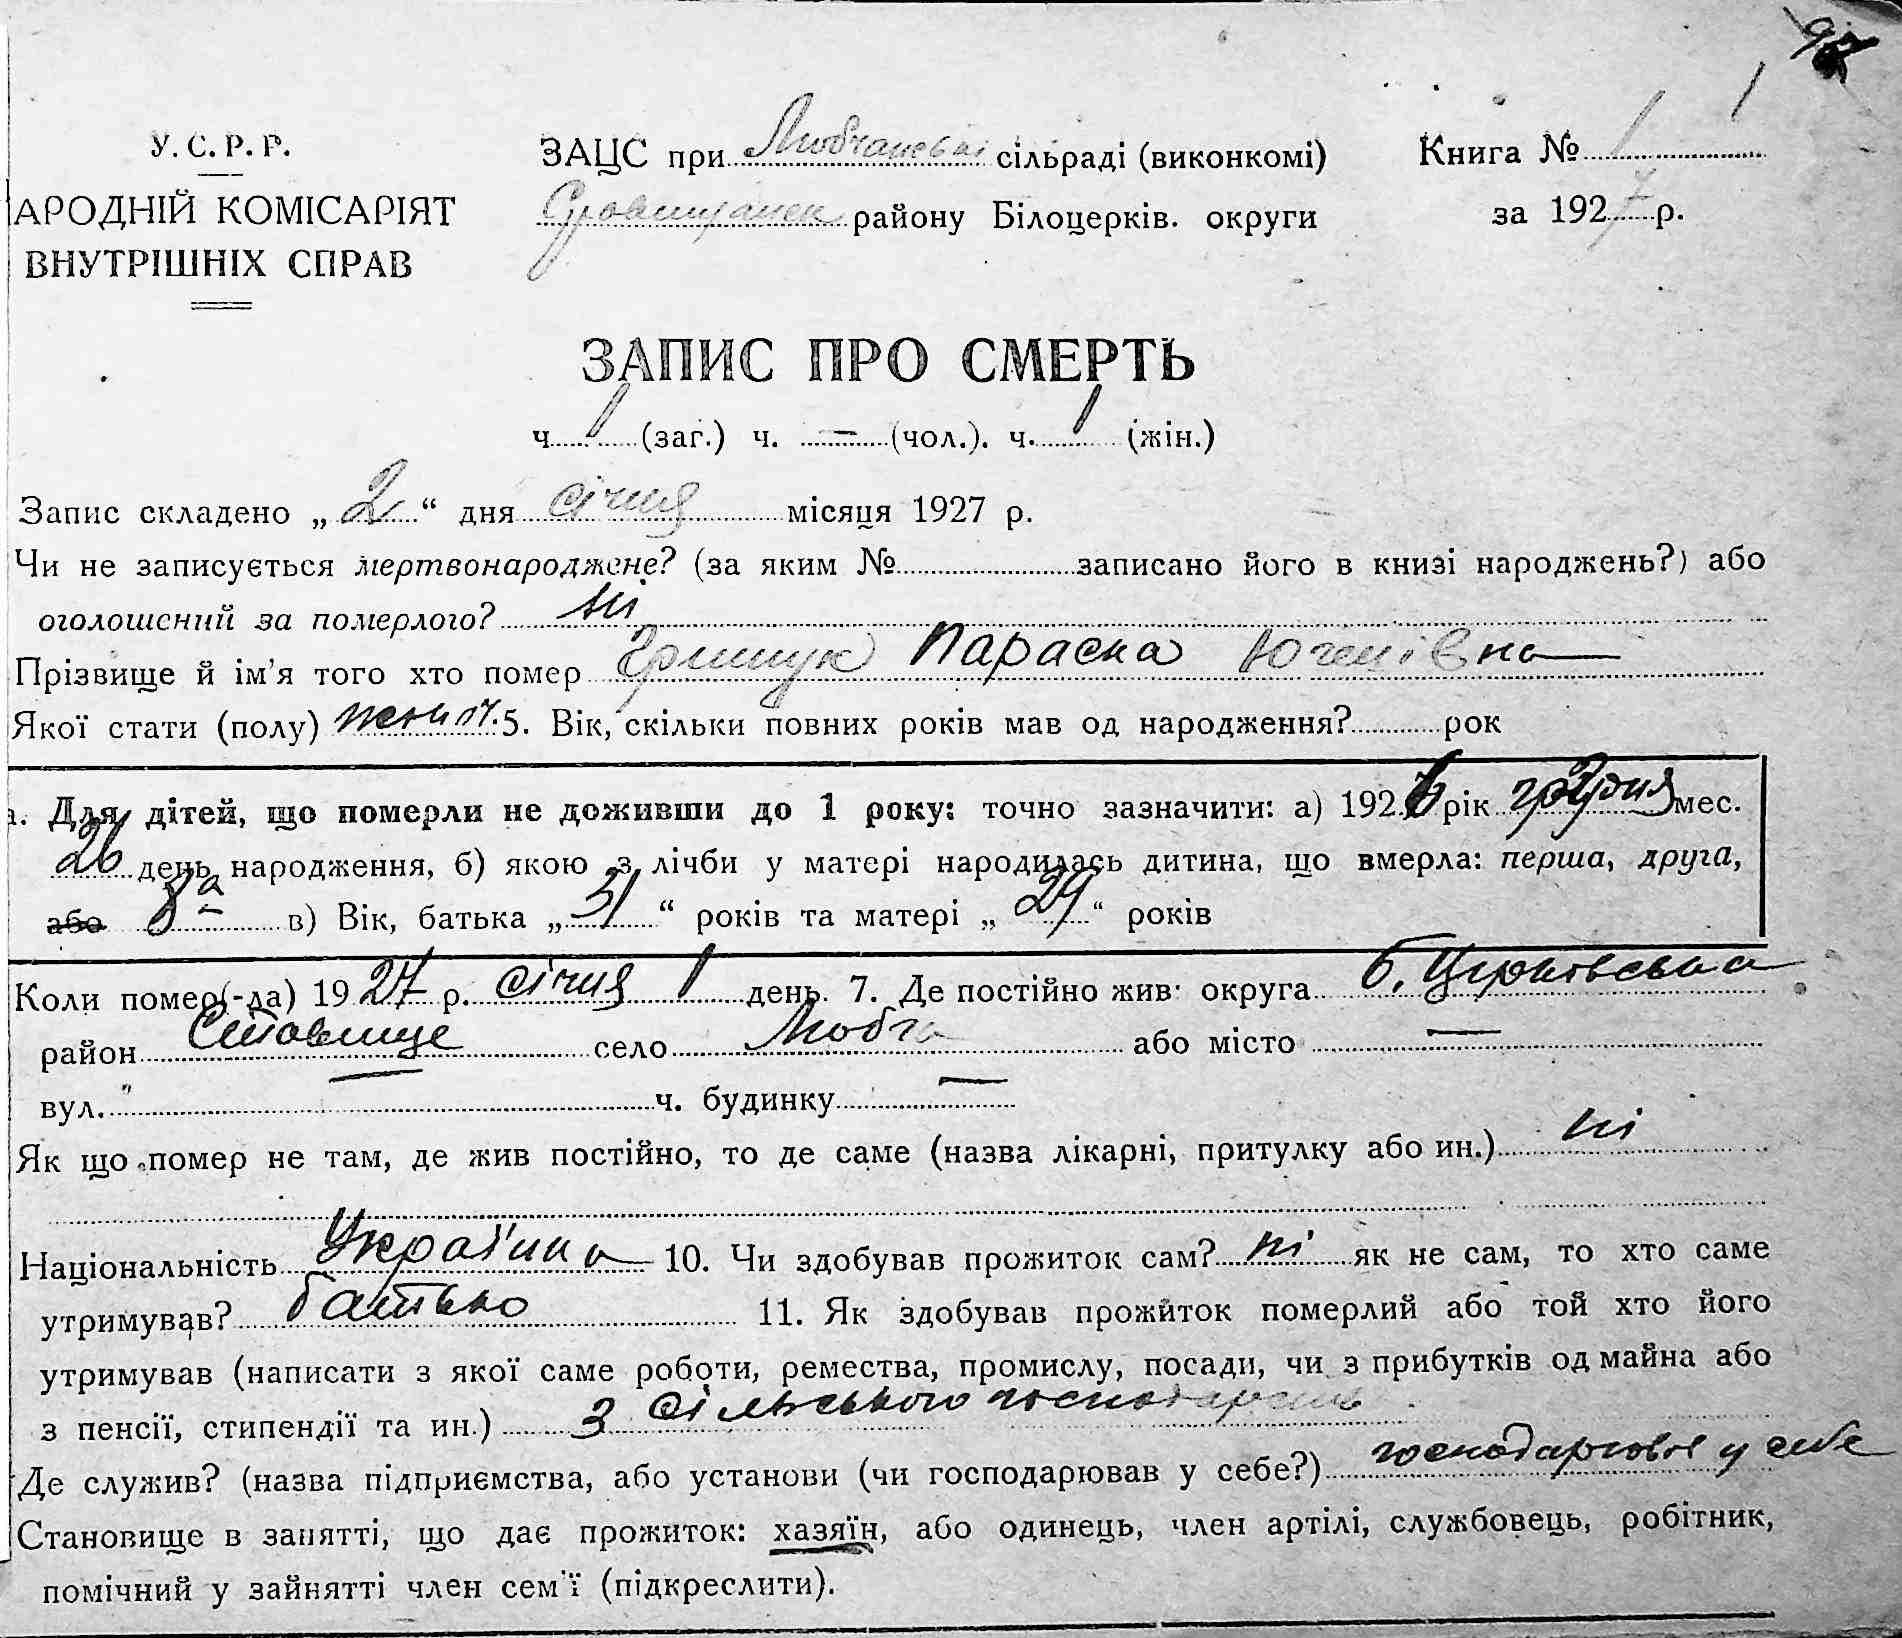 У. С. Р. Р.
АРОДНІЙ КОМІСАРІЯТ
ВНУТРІШНІХ СПРАВ
ЗАЦС при сільраді (виконкомі)
району Білоцерків. округи
Книга № 1
за 1927 р.
ЗАПИС ПРО СМЕРТЬ
ч. 1 (заг.) ч. — (чол.). ч. 1 (жін.)
Запис складено „ 2 “ дня січня місяця 1927 р.
Чи не записується мертвонароджене? (за яким № записано його в книзі народжень?) або
оголошений за померлого? ні
Прізвище й ім’я того хто помер Грищук Параска
Якої стати (полу) жіноч. 5. Вік, скільки повних років мав од народження? рок
а. Для дітей, що померли не доживши до 1 року: точно зазначити: а) 1926 рік грудня мес.
26 день народження, б) якою з лічби у матері народилась дитина, що вмерла: перша, друга,
або 8а в) Вік, батька „ 31 “ років та матері „ 29 “ років
Коли помер(-ла) 1927 р. січня 1 день. 7. Де постійно жив: округа Б. Церковська
район Ставище село Любча або місто —
вул. — ч. будинку —
Як що помер не там, де жив постійно, то де саме (назва лікарні, притулку або ин.) ні
Національність Україна 10. Чи здобував прожиток сам? ні як не сам, то хто саме
утримував? батько 11. Як здобував прожиток померлий або той хто його
утримував (написати з якої саме роботи, ремества, промислу, посади, чи з прибутків од майна або
з пенсії, стипендії та ин.) З сільського господарства
Де служив? (назва підприємства, або установи (чи господарював у себе?) господарював у себе
Становище в занятті, що дає прожиток: хазяїн, або одинець, член артілі, службовець, робітник,
помічний у зайнятті член сем’ї (підкреслити).